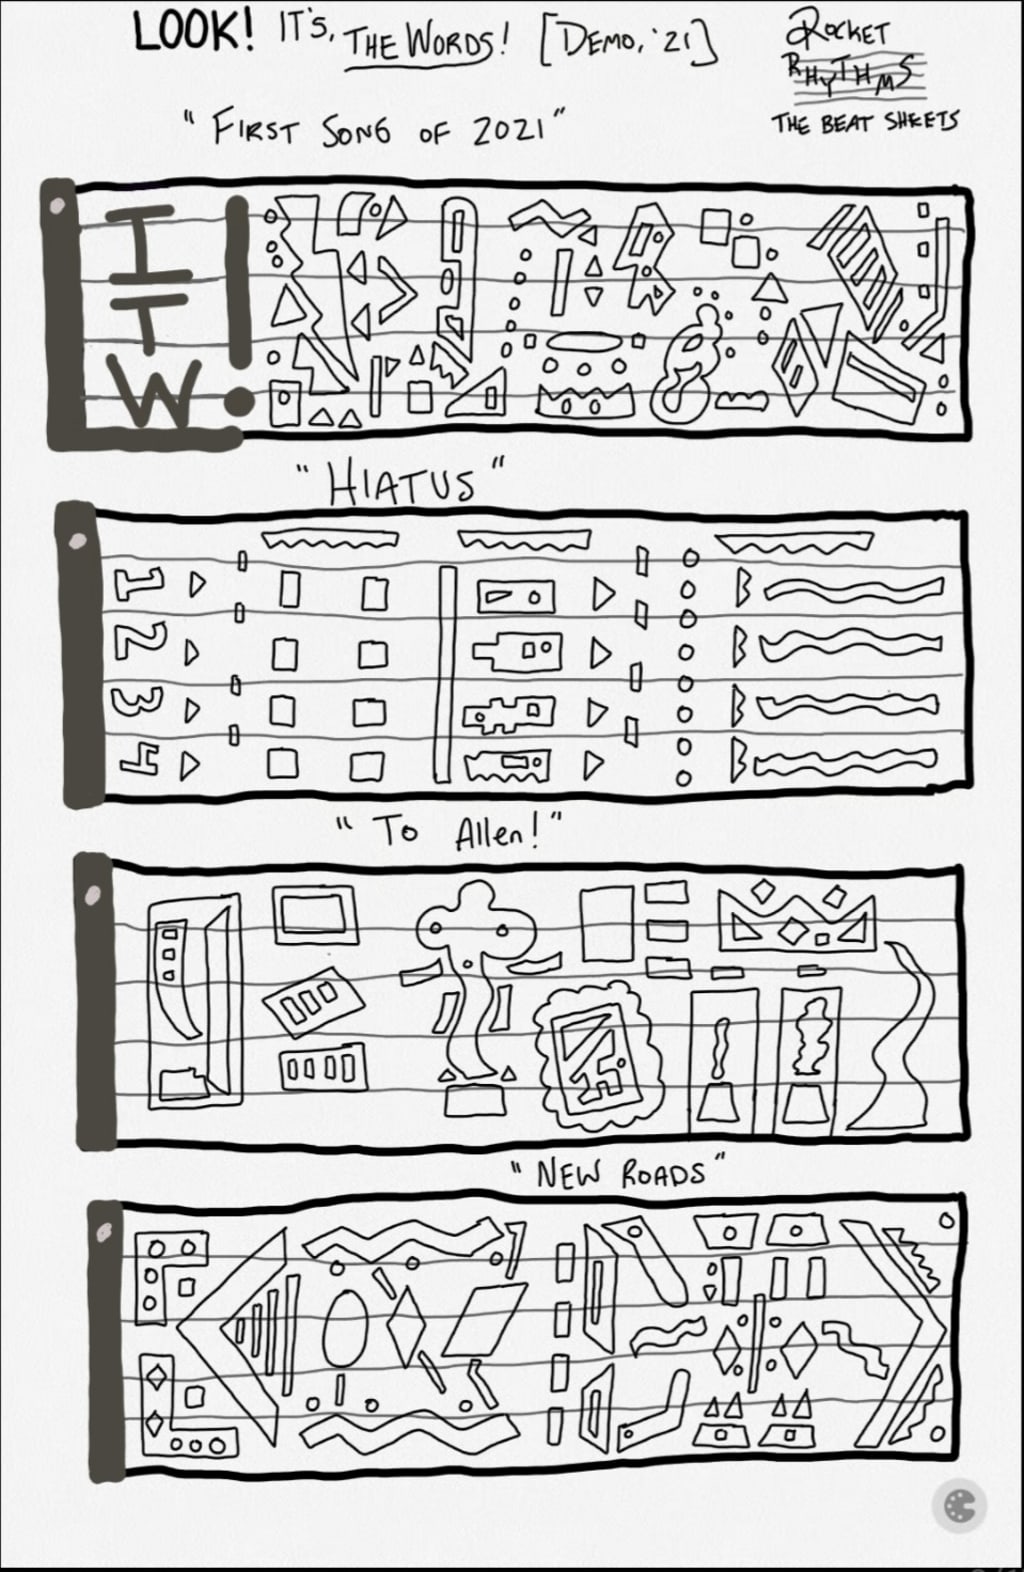 LOOK! IT'S, THE WORDS! [DEMO, '21]
ROCKET
RHYTHMS
THE BEAT SHEETS
"FIRST SONG OF 2021"
I
T
W!
"HIATUS"
1
2
3
4
"To Allen!"
"NEW ROADS"